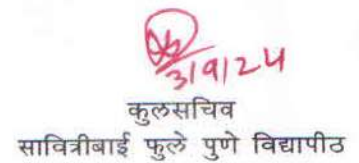 3/9/24
कुलसचिव
सावित्रीबाई फुले पुणे विद्यापीठ